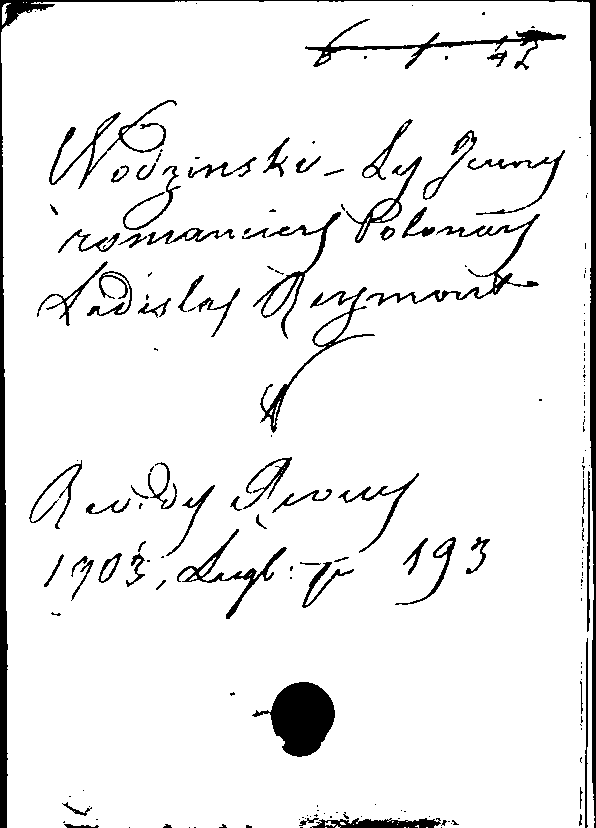 6. 1. 42
Wodzinski - Les Jeunes
romanciers Polonais
Ladislas Reymont
Rev. des Revues
1903, Sugl: p 193